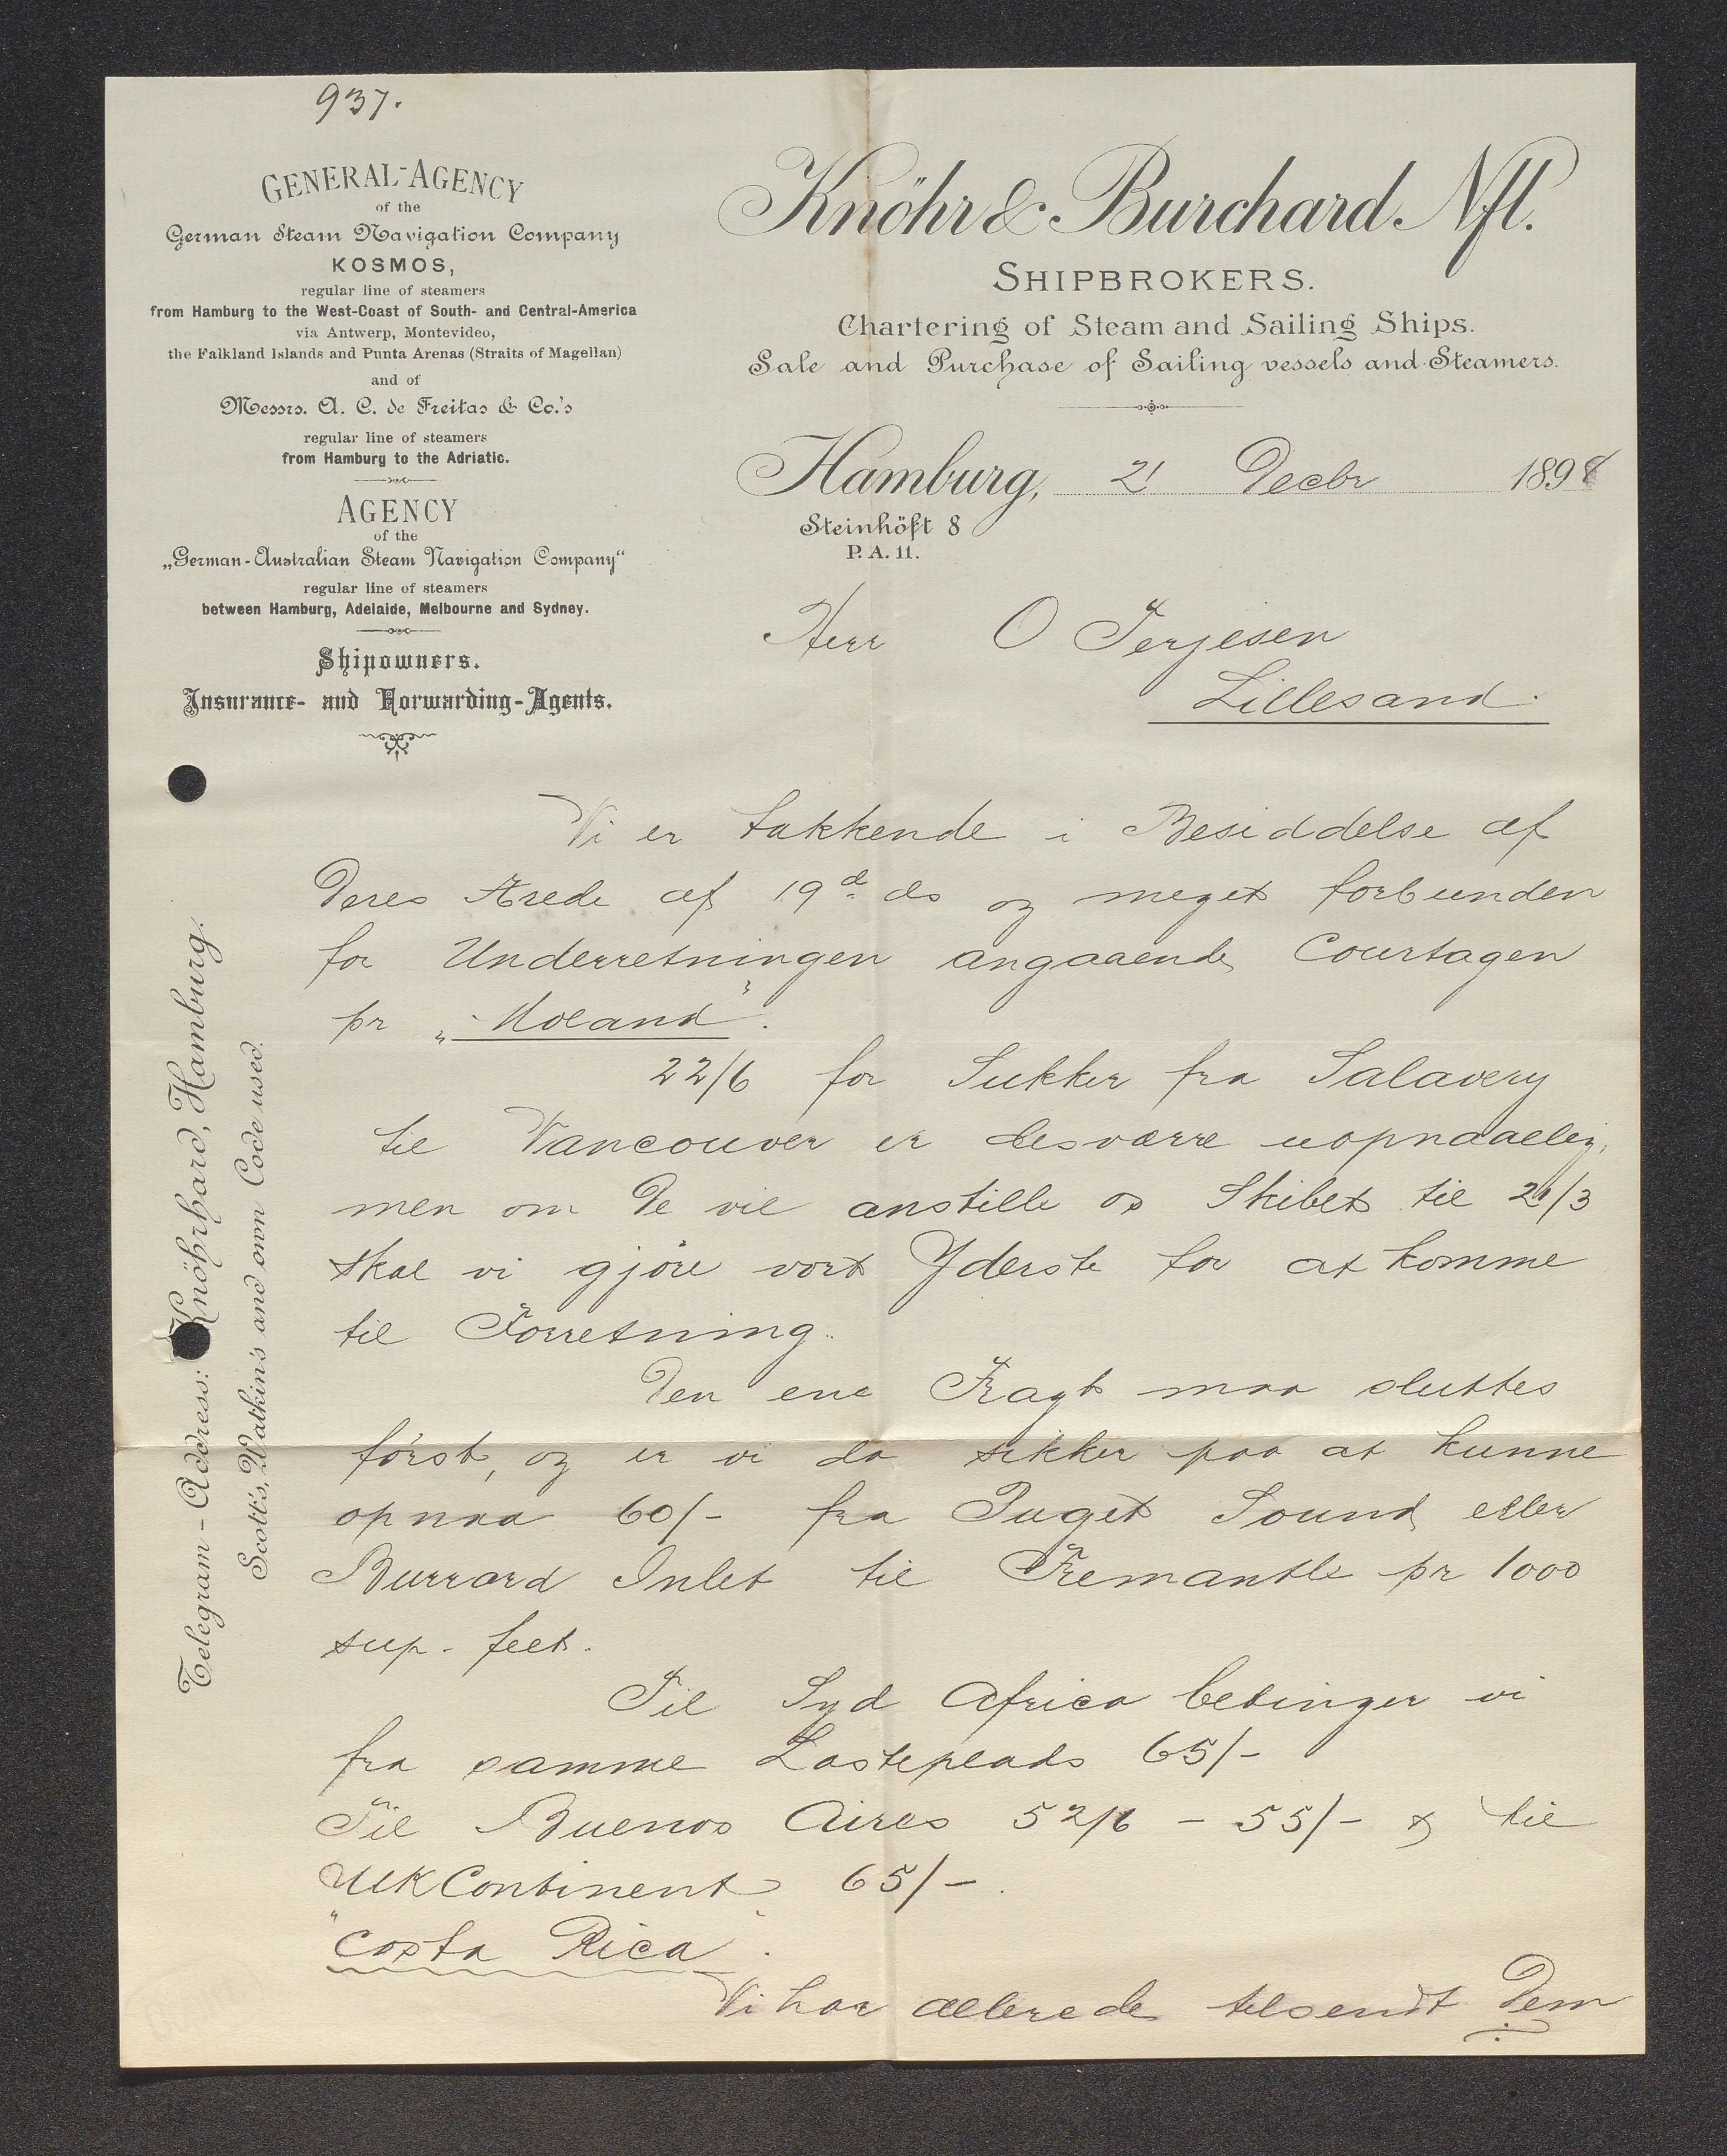 937.
GENERAL-AGENCY
of the
German Steam Navigation Company
KOSMOS,
regular line of steamers
from Hamburg to the West-Coast of South- and Central-America
via Antwerp, Montevideo,
the Falkland Islands and Punta Arenas (Straits of Magellan)
and of
Messrs. A. C. de Freitas & Co.'s
regular line of steamers
from Hamburg to the Adriatic.
AGENCY
of the
„German-Australian Steam Navigation Company“
regular line of steamers
between Hamburg, Adelaide, Melbourne and Sydney.
Shipowners.
Insurance- and Forwarding-Agents.
Telegram-Address: Knöhrhard, Hamburg.
Scott's, Watkin's and own Code used.
Knöhr & Burchard Nfl.
SHIPBROKERS.
Chartering of Steam and Sailing Ships.
Sale and Purchase of Sailing vessels and Steamers.
Hamburg, 21 Decbr 1898
Steinhöft 8
P. A. 11.
Herr O Terjesen
Lillesand.
Vi er takkende i Besiddelse af
Deres Ærede af 19d ds og meget forbunden
for Underretningen angaaende Courtagen
pr „Moland”.
22/6 for Sukker fra Salavery
til Vancouver er desværre uopnaaelig,
men om De vil anstille os Skibet til 21/3
skal vi gjöre vort Yderste for at komme
til Forretning.
Den ene Fragt maa sluttes
först, og er vi da sikker paa at kunne
opnaa 60/- fra Puget Sound eller
Burrard Inlet til Fremantle pr 1000
sup. feet.
Til Syd Africa betinger vi
fra samme Lasteplads 65/-
Til Buenos Aires 52/6 - 55/- & til
UK Continent 65/-.
"Costa Rica".
Vi har allerede tilsendt Dem